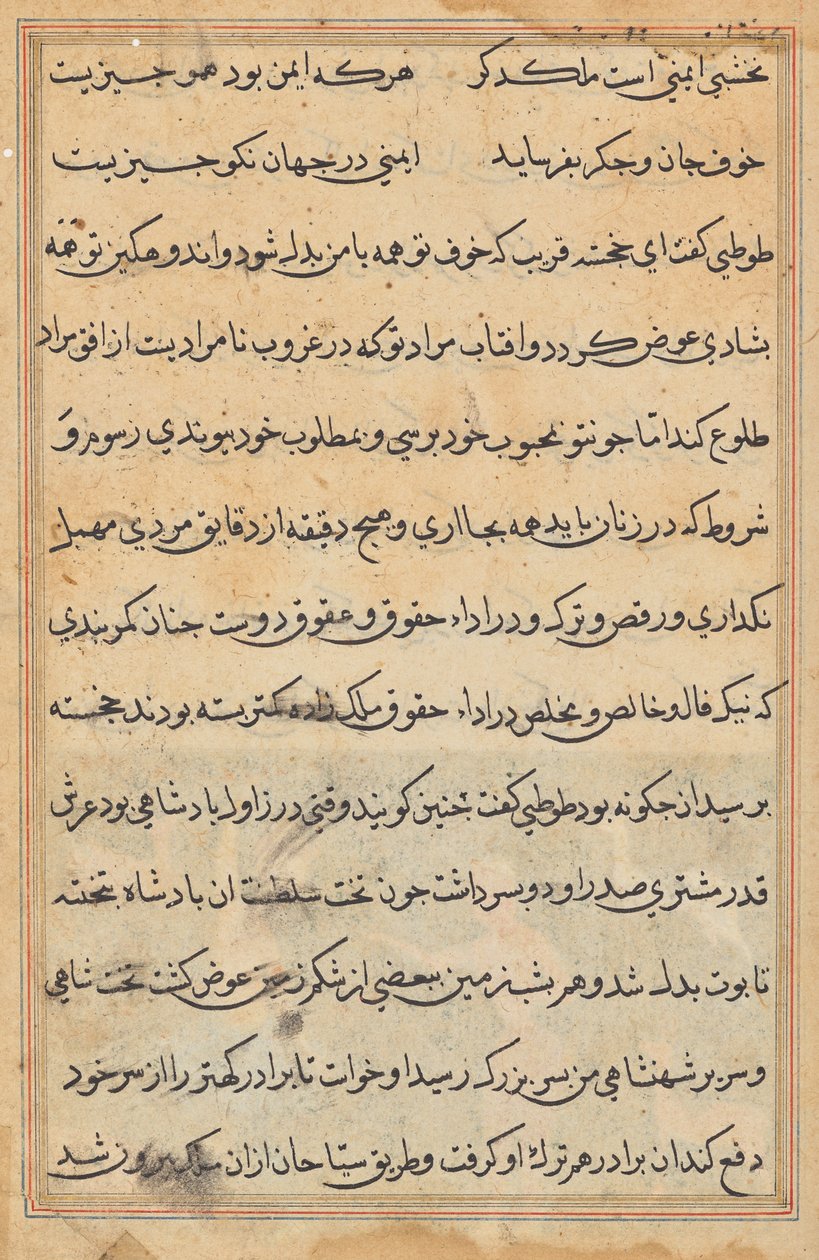 نخشبي ايمني است ملك دكر هركه ايمن بود همو جيزيست
خوف جان وجكر بفرسايد ايمني در جهان نكو جيزيست
طوطيي كفت اي خجسته قريب كه خوف تو همه با من بدل شود واندوهكين تو همه
بشادي عوض كردد وافتاب مراد تو كه در غروب نامراديست از افق مراد
طلوع كند امّا جون تو بمحبوب خود برسي وبمطلوب خود بيوندي رسوم وَ
شروط كه در زنان بايد همه بجا اري وهيج دقيقه از دقايق مردي مهمل
نكذاري و رقص وترك ودر اداء حقوق وعقوق دوست جنان كمر بندي
كه نيك فال وخالص ومخلص در اداء حقوق ملك زاده كمر بسته بودند خجسته
برسيد ان جكونه بود طوطيي كفت جنين كويند وقتي در زاول بادشاهي بود عرش
قدر مشتري صدر او دو بسر داشت جون تخت سلطنت ان بادشاه بتخته
تابوت بدل شد وهم بشبز مين ببعضي از شكم زمين عوض كشت تخت شاهي
وسرير شهنشاهي من بسر بزرك رسيد او خواست تا برادر كهتر را از سر خود
دفع كند ان برادر هم ترك او كرفت وطريق سيّاحان ازان ملك بيرون شد